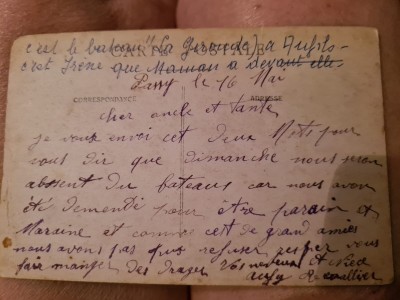 c'est le bateau "La Gironde" a
CARTE POSTALE
c'est Irène que Maman a devant elle
le 16 Mai
CORRESPONDANCE
ADRESSE
cher oncle et tante
je vous envoi cet deux Mots pour
vous dir que dimanche nous seron
absent du bateaus car nous avon
été dementi pour être parain et
Maraine et comme c'est de grand amies
nous avons pas pus refuser vous
faire manger des dragés Vos neveux et